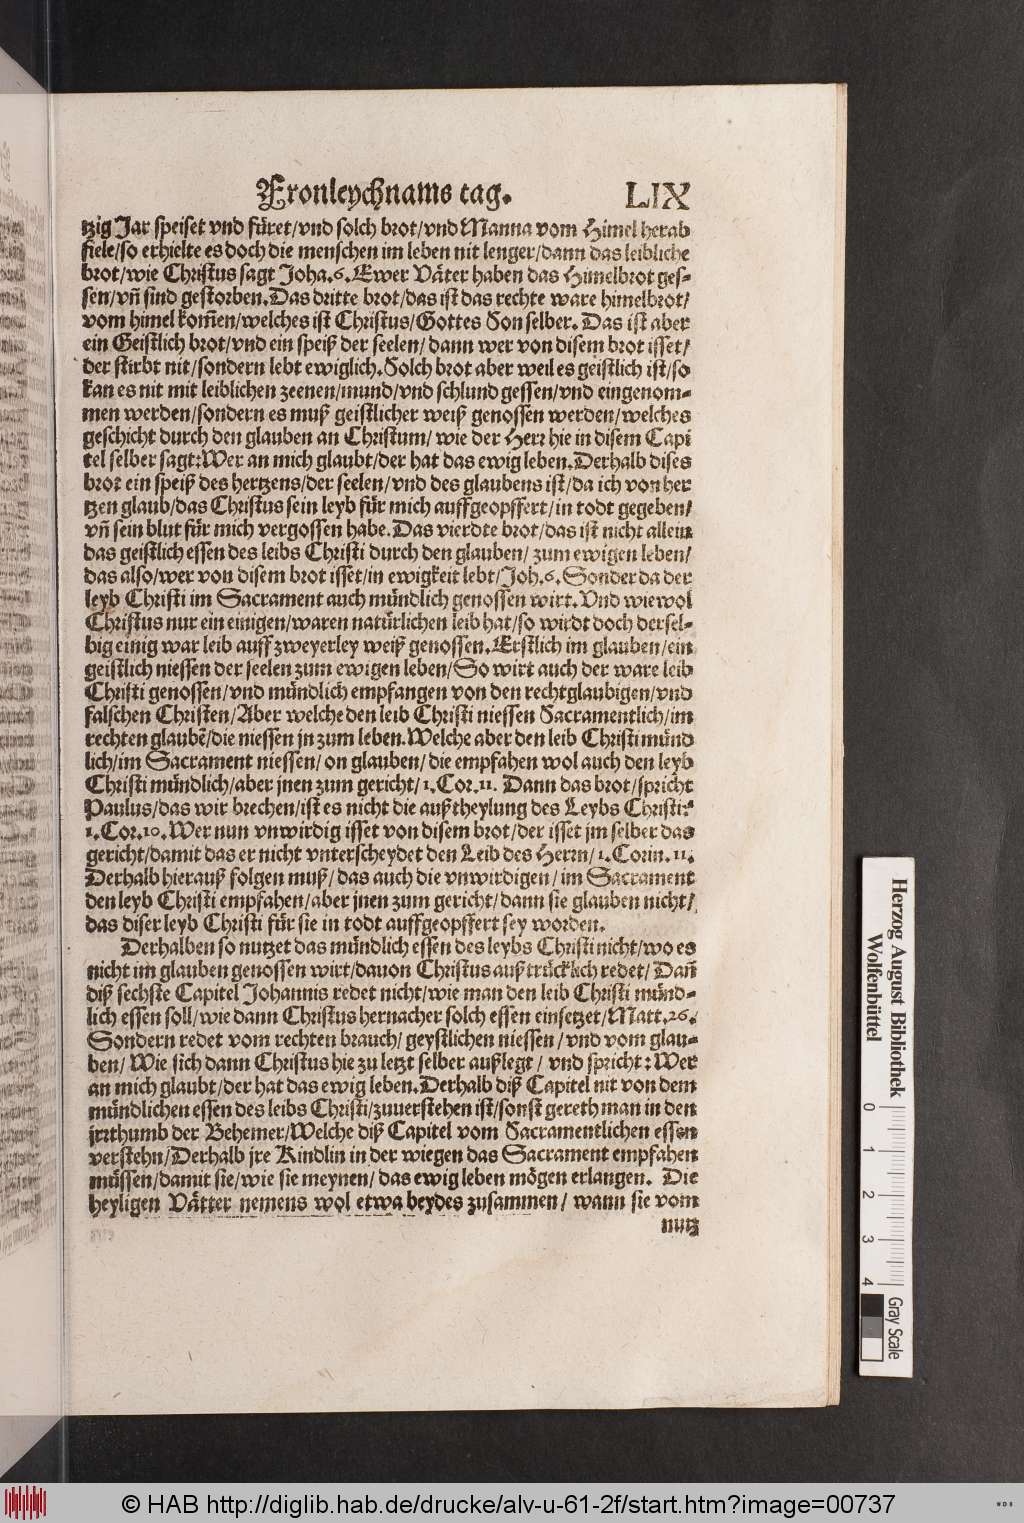 Fronleychnams tag. LIX
tzig Jar speiset vnd füret/vnd solch brot/vnd Manna vom Himel herab
fiele/so erhielte es doch die menschen im leben nit lenger/dann das leibliche
brot/wie Christus sagt Joha.6. Ewer Väter haben das Himelbrot ges-
sen/vñ sind gestorben. Das dritte brot/das ist das rechte ware himelbrot/
vom himel kom̃en/welches ist Christus/Gottes Son selber. Das ist aber
ein Geistlich brot/vnd ein speiß der seelen/ dann wer von disem brot isset/
der stirbt nit/sondern lebt ewiglich. Solch brot aber weil es geistlich ist/so
kan es nit mit leiblichen zeenen/mund/vnd schlund gessen/vnd eingenom-
men werden/sondern es muß geistlicher weiß genossen werden/welches
geschicht durch den glauben an Christum/ wie der Herr hie in disem Capi
tel selber sagt: Wer an mich glaubt/der hat das ewig leben. Derhalb dises
brot ein speiß des hertzens/der seelen/vnd des glaubens ist/da ich von her
tzen glaub/das Christus sein leyb für mich auffgeopffert/in todt gegeben/
vñ sein blut für mich vergossen habe. Das vierdte brot/das ist nicht allein
das geistlich essen des leibs Christi durch den glauben/ zum ewigen leben/
das also/wer von disem brot isset/in ewigkeit lebt/Joh.6. Sonder da der
leyb Christi im Sacrament auch mündlich genossen wirt. Vnd wiewol
Christus nur ein einigen/waren natürlichen leib hat/so wirdt doch dersel-
big einig war leib auff zweyerley weiß genossen. Erstlich im glauben/ein
geistlich niessen der seelen zum ewigen leben/So wirt auch der ware leib
Christi genossen/vnd mündlich empfangen von den rechtglaubigen/vnd
falschen Christen/Aber welche den leib Christi niessen Sacramentlich/im
rechten glaubẽ/die niessen jn zum leben. Welche aber den leib Christi münd
lich/im Sacrament niessen/ on glauben/ die empfahen wol auch den leyb
Christi mündlich/aber jnen zum gericht/1.Cor.11. Dann das brot/spricht
Paulus/das wir brechen/ist es nicht die außtheylung des Leybs Christi?
1.Cor.10. Wer nun vnwirdig isset von disem brot/der isset jm selber das
gericht/damit das er nicht vnterscheydet den Leib des Herrn/1.Corin.11.
Derhalb hierauß folgen muß/ das auch die vnwirdigen/ im Sacrament
den leyb Christi empfahen/aber jnen zum gericht/dann sie glauben nicht/
das diser leyb Christi für sie in todt auffgeopffert sey worden.
Derhalben so nutzet das mündlich essen des leybs Christi nicht/wo es
nicht im glauben genossen wirt/dauon Christus außtrücklich redet/ Dañ
diß sechste Capitel Johannis redet nicht/wie man den leib Christi münd-
lich essen soll/wie dann Christus hernacher solch essen einsetzet/Matt.26.
Sondern redet vom rechten brauch/ geystlichen niessen/ vnd vom glau-
ben/ Wie sich dann Christus hie zu letzt selber außlegt/ vnd spricht: Wer
an mich glaubt/der hat das ewig leben. Derhalb diß Capitel nit von dem
mündlichen essen des leibs Christi/zuuerstehen ist/sonst gereth man in den
jrrthumb der Behemer/Welche diß Capitel vom Sacramentlichen essen
verstehn/Derhalb jre Kindlin in der wiegen das Sacrament empfahen
müssen/damit sie/wie sie meynen/ das ewig leben mögen erlangen. Die
heyligen Vätter nemens wol etwa beydes zusammen/ wann sie vom
nutz
Herzog August Bibliothek
Wolfenbüttel
0 1 2 3 4
Gray Scale
© HAB http://diglib.hab.de/drucke/alv-u-61-2f/start.htm?image=00737